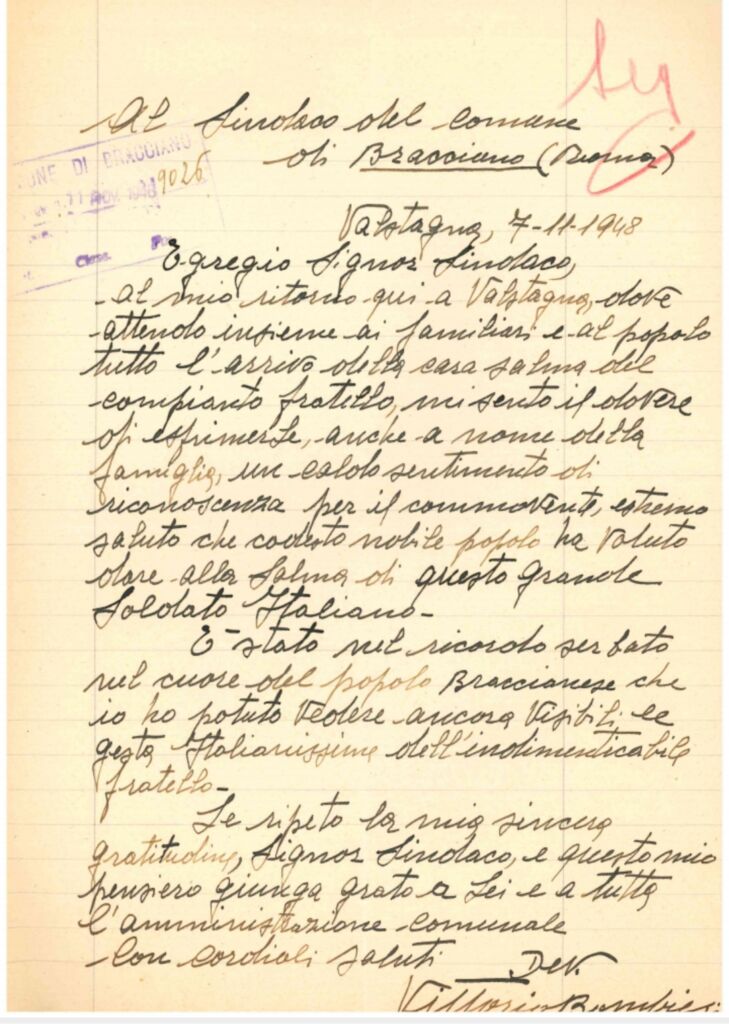 Al Sindaco del comune
di Bracciano (Roma)
COMUNE DI BRACCIANO
11 NOV. 1948
9026
Clas.
Valstagna, 7-11-1948
Egregio Signor Sindaco,
al mio ritorno qui a Valstagna, dove
attendo insieme ai familiari e al popolo
tutto l'arrivo della cara salma del
compianto fratello, mi sento il dovere
di esprimerLe, anche a nome della
famiglia, un caldo sentimento di
riconoscenza per il commovente, estremo
saluto che codesto nobile popolo ha voluto
dare alla Salma di questo grande
Soldato Italiano-
E' stato nel ricordo serbato
nel cuore del popolo Braccianese che
io ho potuto vedere ancora visibili le
gesta Italianissime dell'indimenticabile
fratello-
Le ripeto la mia sincera
gratitudine, Signor Sindaco, e questo mio
pensiero giunga grato a Lei e a tutta
l'amministrazione comunale
Con cordiali saluti
Dev.
Vittorio